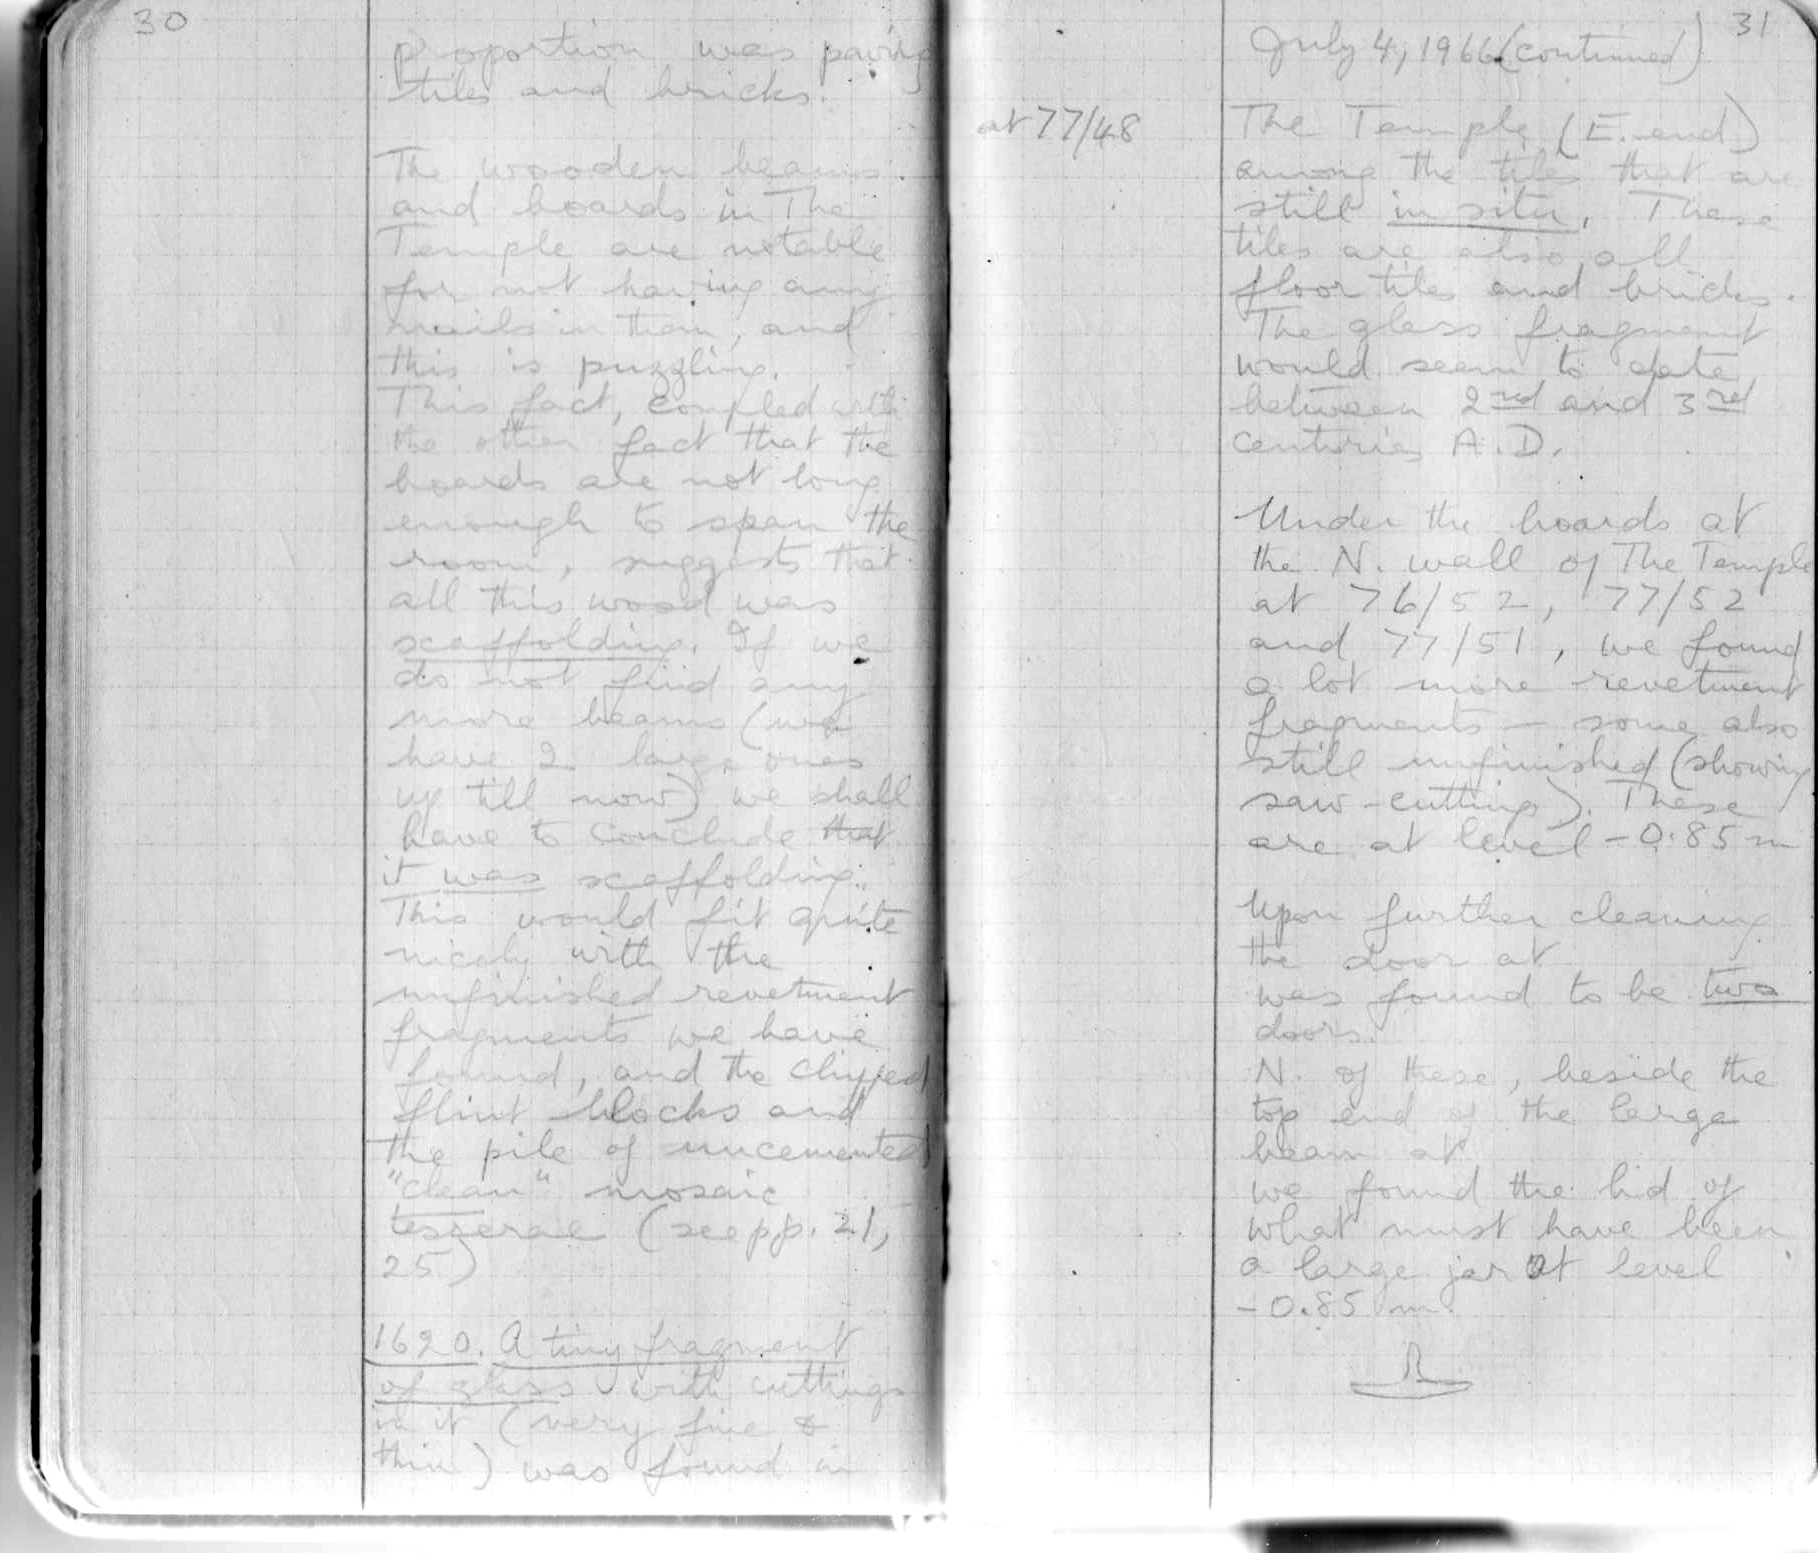 30
proportion was paving
tiles and bricks.
The wooden beams
and boards in The
Temple are notable
for not having any
nails in them, and
this is puzzling.
This fact, coupled with
the other fact that the
boards are not long
enough to span the
room, suggests that
all this wood was
scaffolding. If we
do not find any
more beams (we
have 2 large ones
up till now) we shall
have to conclude that
it was scaffolding.
This would fit quite
nicely with the
unfinished revetment
fragments we have
found, and the chipped
flint blocks and
the pile of uncemented
"clean" mosaic
tesserae (see pp. 21,
25)
1620. A tiny fragment
of glass with cuttings
in it (very fine &
thin) was found in
31
July 4, 1966 (continued)
at 77/48
The Temple (E. end)
among the tiles that are
still in situ. These
tiles are also all
floor tiles and bricks.
The glass fragment
would seem to date
between 2nd and 3rd
centuries A.D.
Under the boards at
the N. wall of The Temple
at 76/52, 77/52
and 77/51, we found
a lot more revetment
fragments – some also
still unfinished (showing
saw-cutting). These
are at level -0.85 m
Upon further cleaning
the door at
was found to be two
doors.
N. of these, beside the
top end of the large
beam at
we found the lid of
what must have been
a large jar at level
-0.85 m.